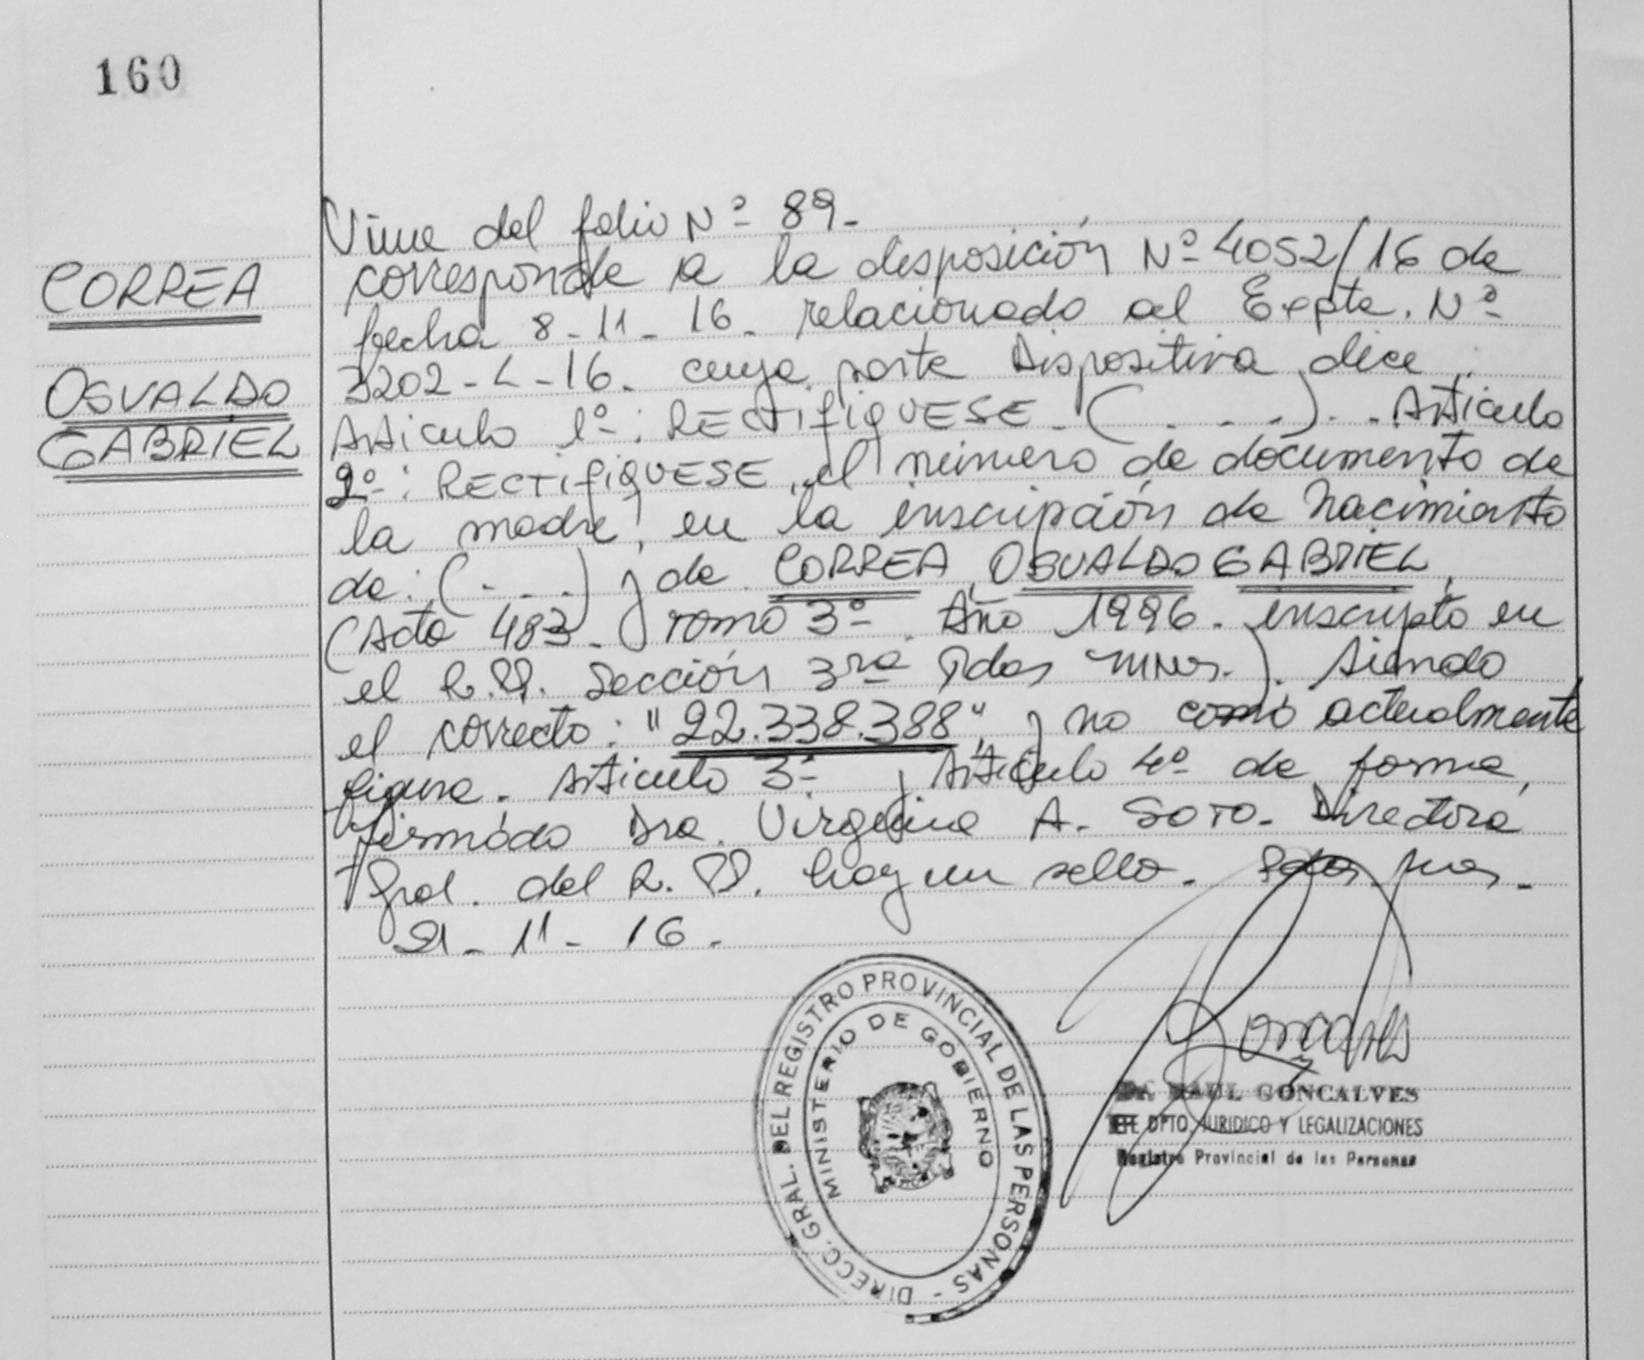 160
CORREA
OSVALDO
GABRIEL
Viene del folio Nº 89-
corresponde a la disposición Nº 4052/16 de
fecha 8-11-16. relacionado al Expte. Nº
3202-L-16. cuya parte Dispositiva dice:
Articulo 1º: RECTIFIQUESE-(....).. Articulo
2º: RECTIFIQUESE, el número de documento de
la madre, en la inscripción de Nacimiento
de: (....) y de CORREA, OSVALDO GABRIEL,
(Acta 483. Tomo 3º. Año 1996. inscripto en
el R.P. Sección 3ra Pdas Mnes.). siendo
el correcto: "22.338.388", y no como actualmente
figura. Articulo 3º y Articulo 4º de forma,
Firmado Dra. Virginia A. SOTO. Directora
Gral. del R.P. hay un sello. Pdas, Mnes,-
21-11-16.
DIRECC. GRAL. DEL REGISTRO PROVINCIAL DE LAS PERSONAS -
MINISTERIO DE GOBIERNO
RAUL GONCALVES
JEFE DPTO. JURIDICO Y LEGALIZACIONES
Registro Provincial de las Personas